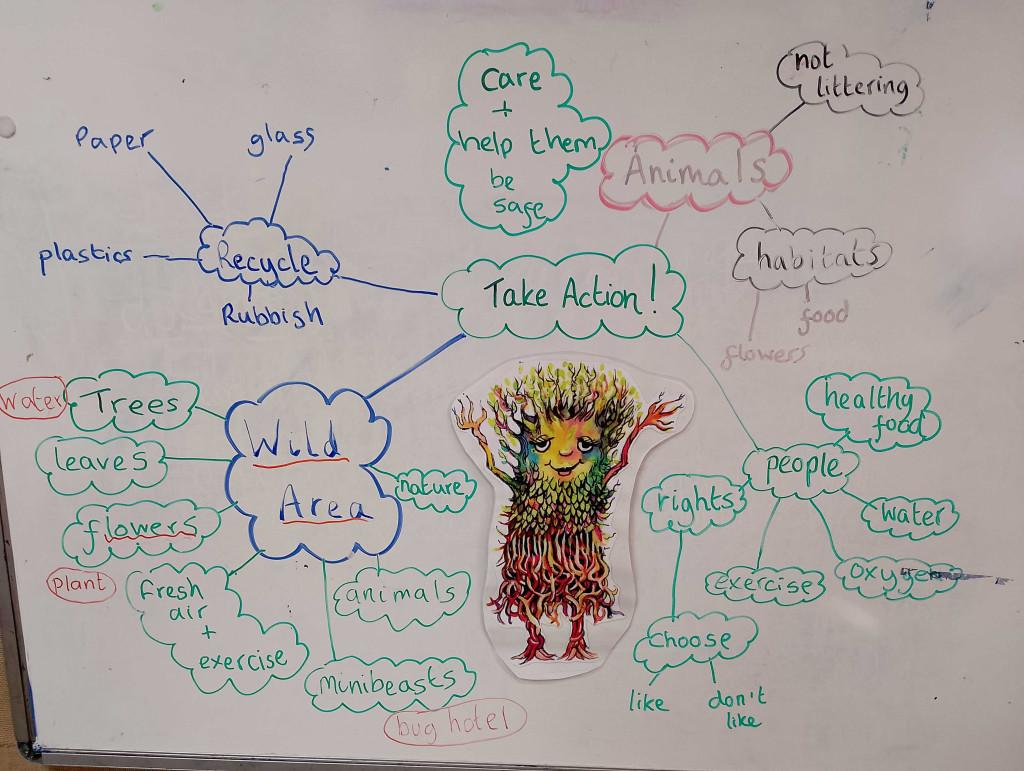 Paper
glass
plastics
Recycle
Rubbish
Care
+
help them
be
safe
Animals
not
littering
habitats
food
flowers
Take Action!
Wild
Area
Trees
water
leaves
flowers
plant
fresh
air
+
exercise
nature
animals
Minibeasts
bug hotel
people
healthy
food
water
oxygen
exercise
rights
Choose
like
don't
like